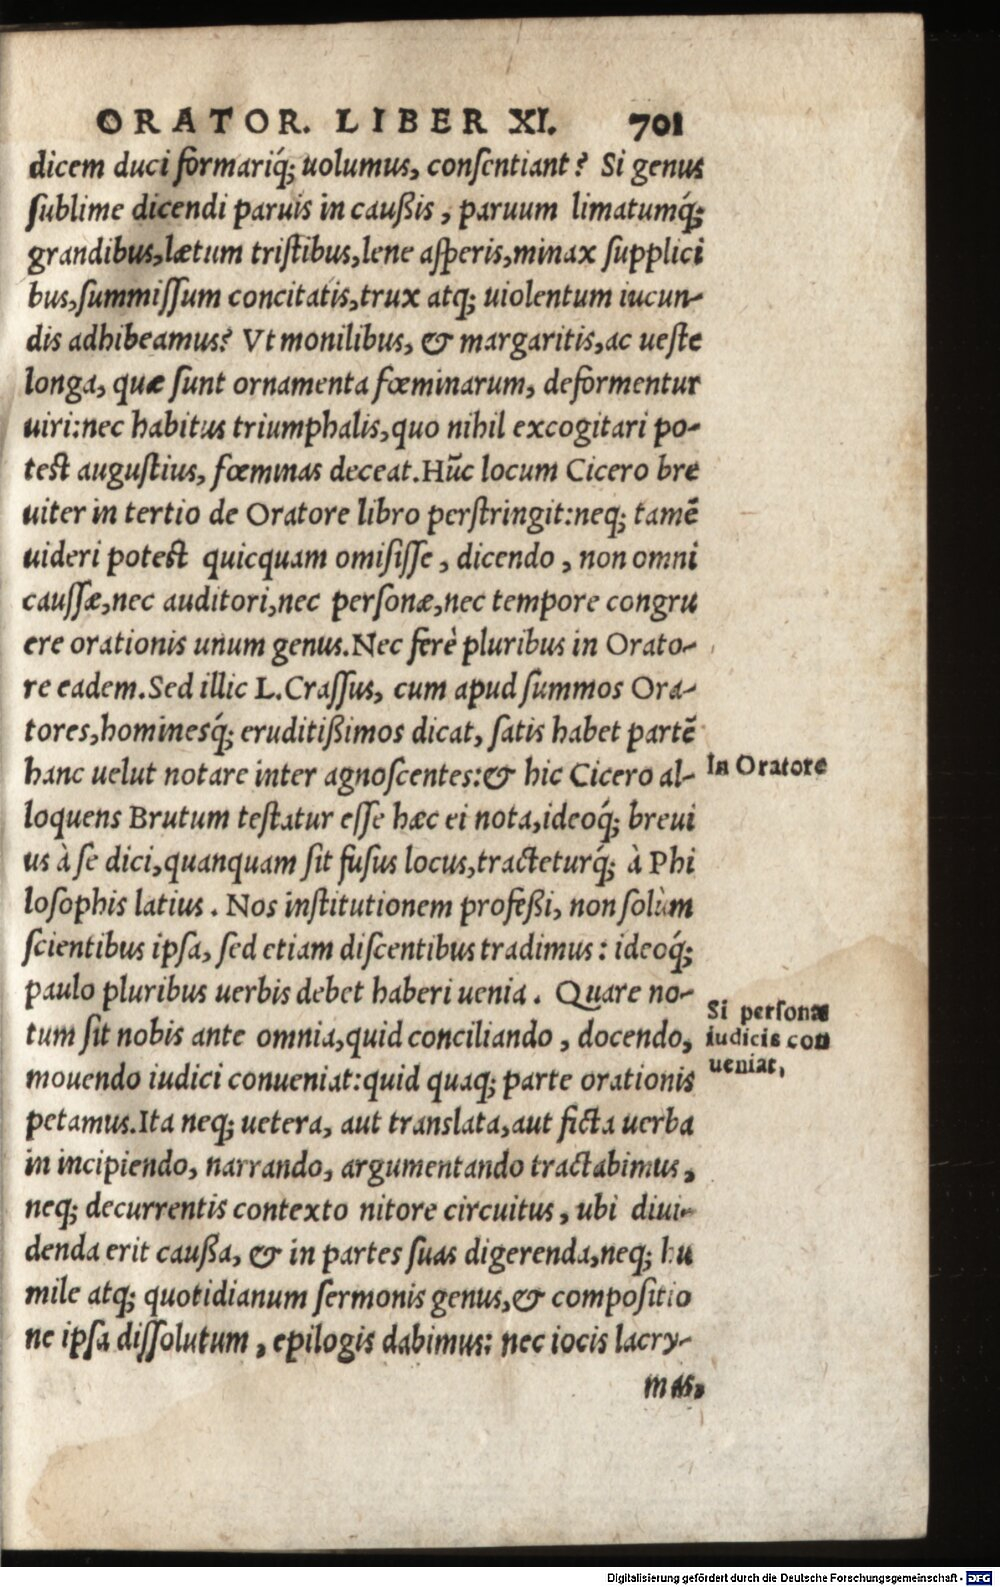 ORATOR. LIBER XI. 701
dicem duci formariq́; uolumus, conſentiant? Si genus
ſublime dicendi paruis in caußis, paruum limatumq́;
grandibus, lætum triſtibus, lene aſperis, minax ſupplici
bus, ſummiſſum concitatis, trux atq; uiolentum iucun-
dis adhibeamus? Vt monilibus, & margaritis, ac ueſte
longa, quæ ſunt ornamenta fœminarum, deformentur
uiri: nec habitus triumphalis, quo nihil excogitari po-
teſt auguſtius, fœminas deceat. Hūc locum Cicero bre
uiter in tertio de Oratore libro perſtringit: neq; tamē
uideri poteſt quicquam omiſiſſe, dicendo, non omni
cauſſæ, nec auditori, nec perſonæ, nec tempore congru
ere orationis unum genus. Nec ferè pluribus in Orato-
re eadem. Sed illic L. Craſſus, cum apud ſummos Ora-
tores, hominesq́; eruditißimos dicat, ſatis habet partē
hanc uelut notare inter agnoſcentes: & hic Cicero al-
In Oratore
loquens Brutum teſtatur eſſe hæc ei nota, ideoq́; breui
us à ſe dici, quanquam ſit fuſus locus, tracteturq́; à Phi
loſophis latius. Nos inſtitutionem profeßi, non ſolùm
ſcientibus ipſa, ſed etiam diſcentibus tradimus: ideoq́;
paulo pluribus uerbis debet haberi uenia. Quare no-
tum ſit nobis ante omnia, quid conciliando, docendo,
mouendo iudici conueniat: quid quaq; parte orationis
Si perſonæ
iudicis con
ueniat,
petamus. Ita neq; uetera, aut translata, aut ficta uerba
in incipiendo, narrando, argumentando tractabimus,
neq; decurrentis contexto nitore circuitus, ubi diui-
denda erit caußa, & in partes ſuas digerenda, neq; hu
mile atq; quotidianum ſermonis genus, & compoſitio
ne ipſa diſſolutum, epilogis dabimus: nec iocis lacry-
mas,
Digitalisierung gefördert durch die Deutsche Forschungsgemeinschaft - DFG